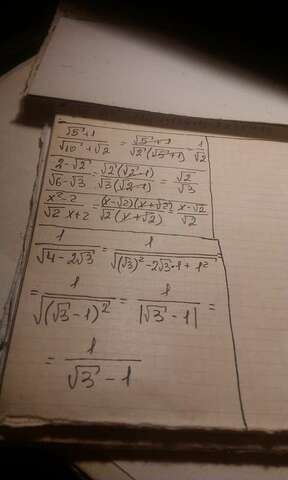 (√5+1)/(√10+√2) = (√5+1)/(√2(√5+1)) = 1/√2
(2-√2)/(√6-√3) = (√2(√2-1))/(√3(√2-1)) = √2/√3
(x²-2)/(√2 x+2) = ((x-√2)(x+√2))/(√2(x+√2)) = (x-√2)/√2
1/√(4-2√3) = 1/√((√3)²-2√3·1+1²) =
= 1/√((√3-1)²) = 1/|√3-1| =
= 1/(√3-1)